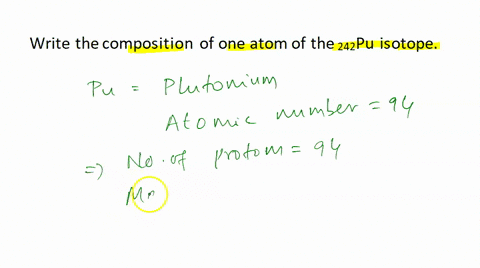 Write the composition of one atom of the ₂₄₂Pu isotope.
Pu = Plutonium
Atomic number = 94
⇒ No. of protom = 94
Ma